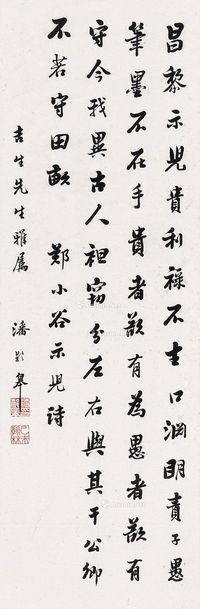 昌黎示兒貴利祿不去口淵明責子愚
筆墨不在手貴者歆有為愚者歆有
守今我異古人袒竊分左右與其干公卿
不若守田畝 鄭小谷示兒詩
吉生先生雅屬 潘齡皋